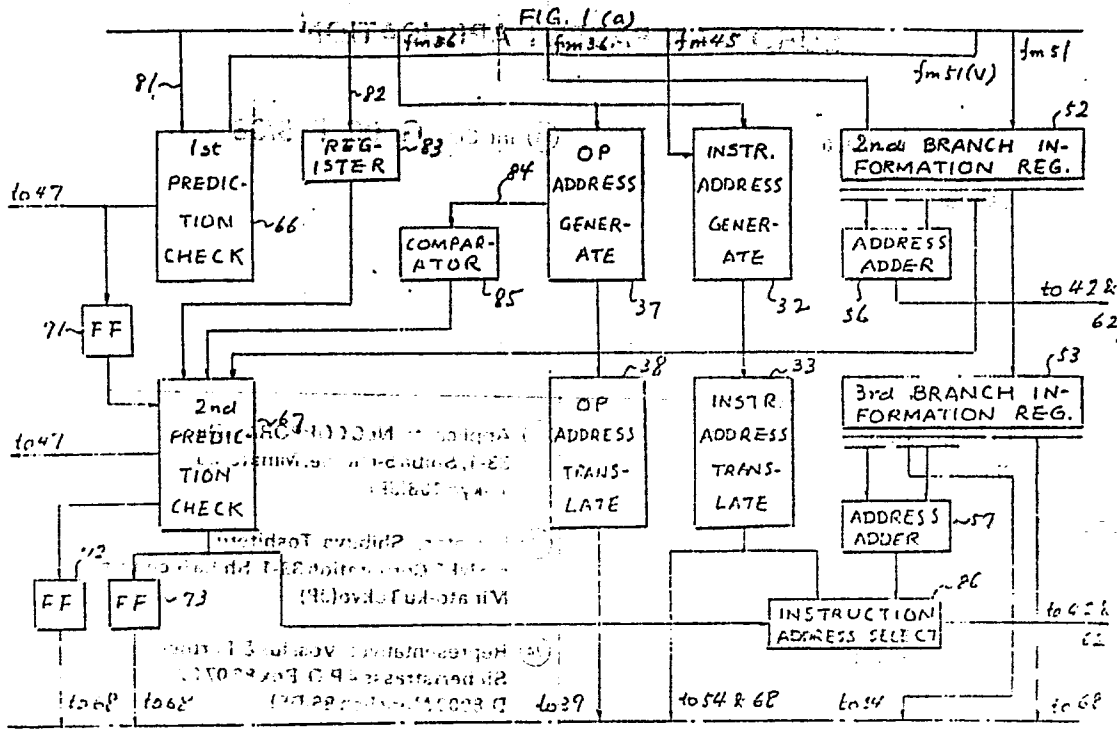 FIG. 1 (a)
fm36
fm36
fm45
fm51
fm51(V)
81
82
52
1st
PREDIC-
TION
CHECK
66
REG-
ISTER
83
84
OP
ADDRESS
GENER-
ATE
37
INSTR.
ADDRESS
GENER-
ATE
32
2nd BRANCH IN-
FORMATION REG.
to 47
COMPAR-
ATOR
85
ADDRESS
ADDER
56
to 42 &
62
71
FF
53
38
33
2nd
PREDIC-
TION
CHECK
67
OP
ADDRESS
TRANS-
LATE
INSTR.
ADDRESS
TRANS-
LATE
3rd BRANCH IN-
FORMATION REG.
to 47
ADDRESS
ADDER
57
FF
FF
73
86
INSTRUCTION
ADDRESS SELECT
62
to 39
to 54 & 68
to 68